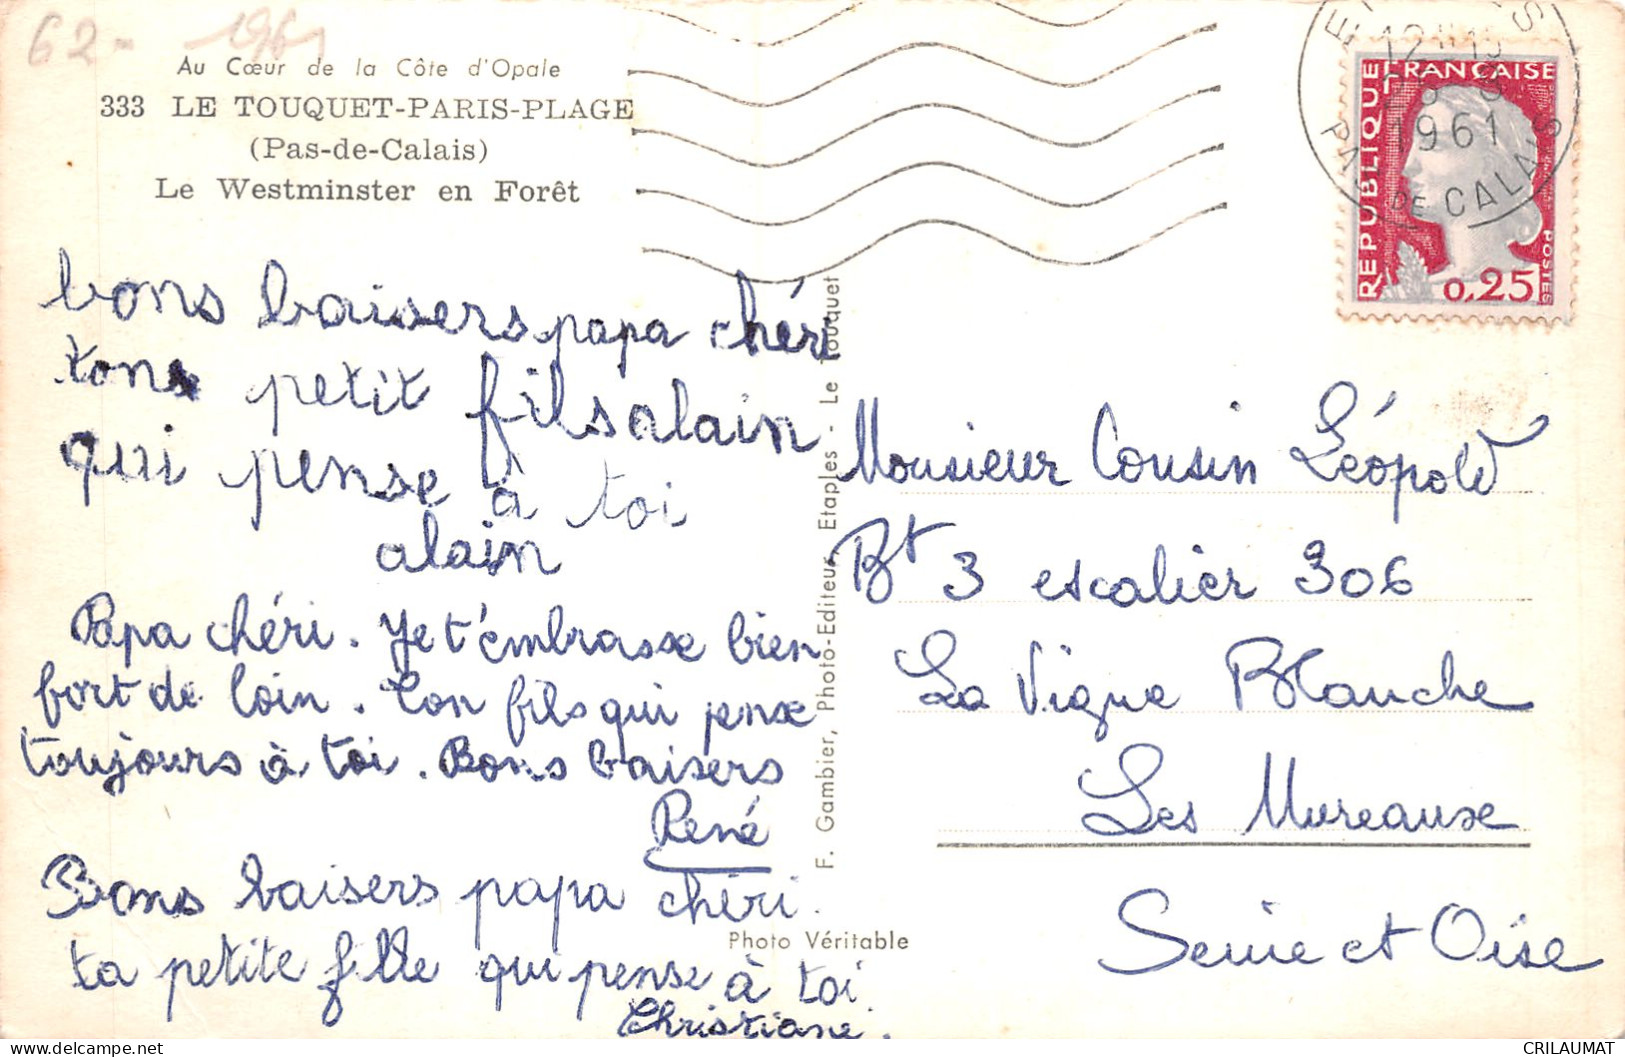 62- 1961
Au Cœur de la Côte d'Opale
333 LE TOUQUET-PARIS-PLAGE
(Pas-de-Calais)
Le Westminster en Forêt
bons baisers papa chéri
ton petit fils alain
qui pense à toi
alain
Papa chéri. Je t'embrasse bien
fort de loin. Ton fils qui pense
toujours à toi. Bons baisers
René
Bons baisers papa chéri.
ta petite fille qui pense à toi
Christiane.
F. Gambier, Photo-Editeur, Etaples - Le Touquet
Photo Véritable
1961
PAS DE CALAIS
RÉPUBLIQUE
FRANÇAISE
POSTES
0,25
Monsieur Cousin Léopold
Bt 3 escalier 306
La Vigne Blanche
Les Mureaux
Seine et Oise
CRILAUMAT